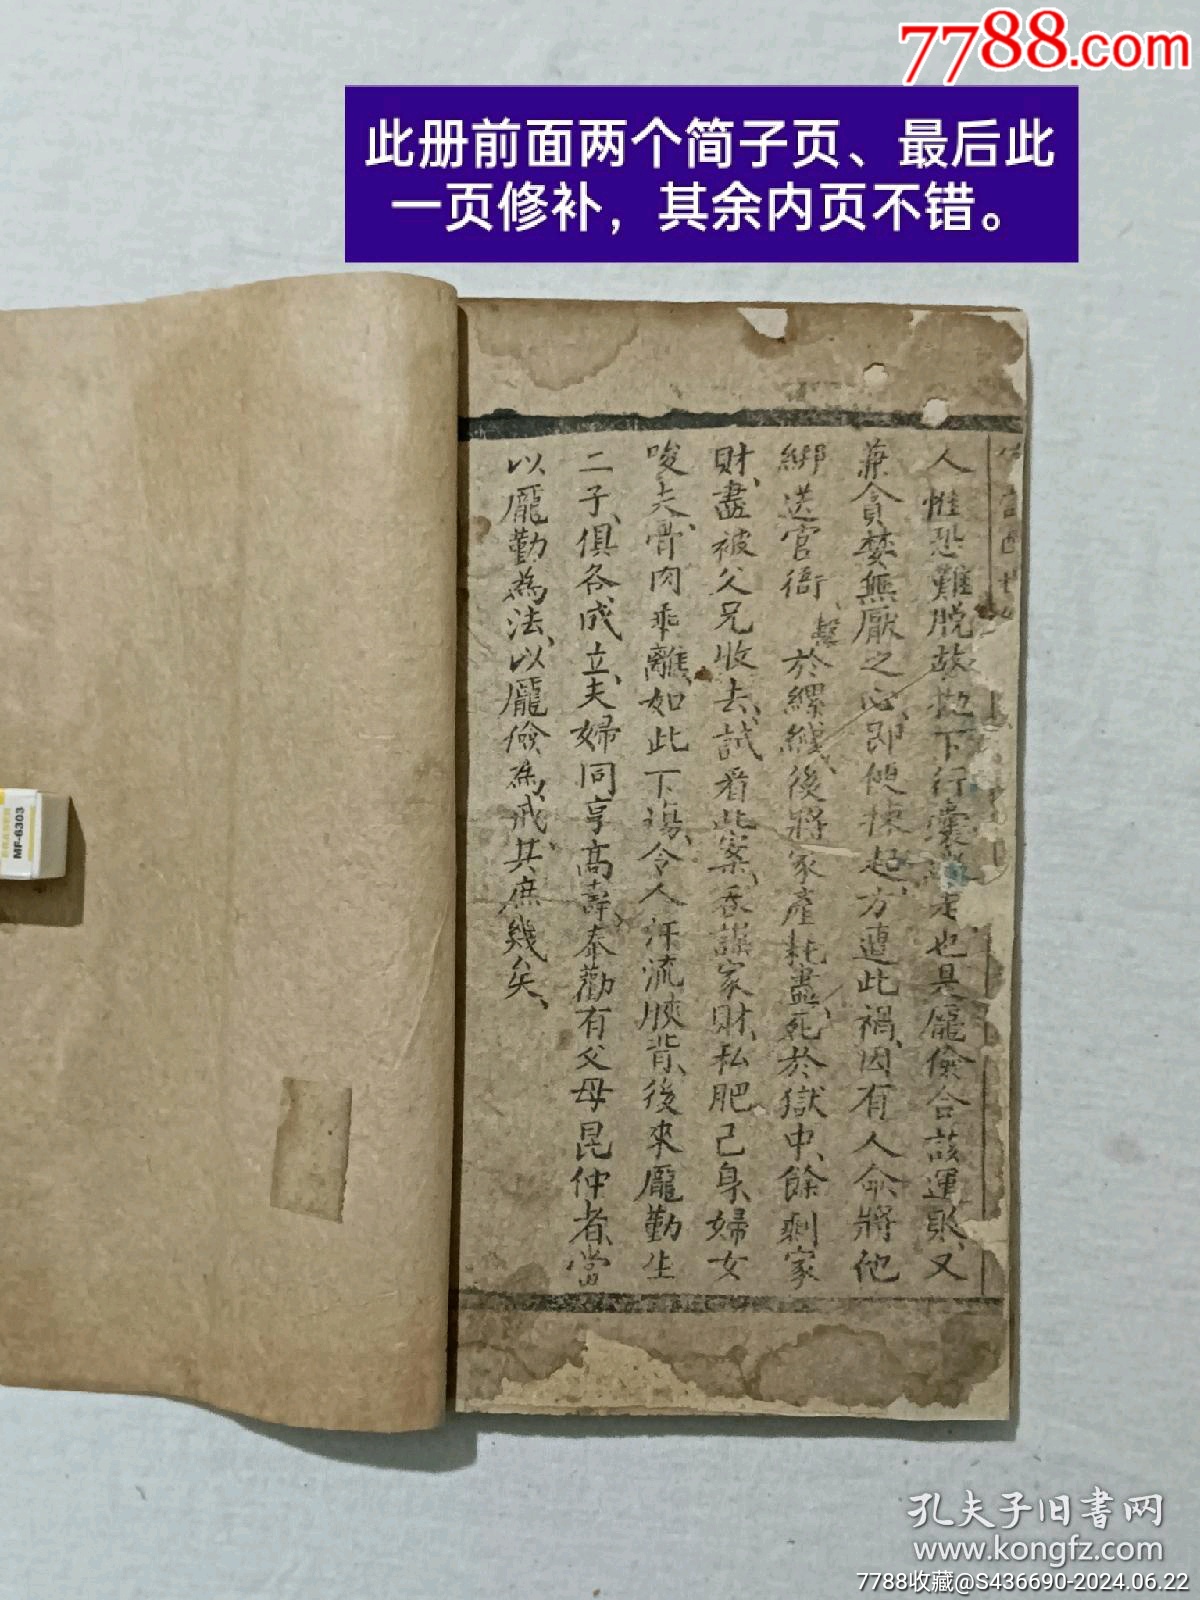 7788.com
此册前面两个简子页、最后此
一页修补，其余内页不错。
人惟恐難脱故抛下行囊走也是龎儉合該運敗、又
兼貪婪無厭之心、即便揀起、方遭此禍、因有人命、將他
綁送官衙、繫於縲絏、後將家產耗盡、死於獄中、餘剩家
財、盡被父兄收去、試看此案、吞謀家財、私肥己身、婦女
唆夫、骨肉乖離、如此下場、令人汗流浹背、後來龎勤生
二子、俱各成立、夫婦同享高壽、奉勸有父母昆仲者、當
以龎勤為法、以龎儉為戒、其庶幾矣、
MF-6303
孔夫子旧书网
www.kongfz.com
7788收藏@S436690-2024.06.22